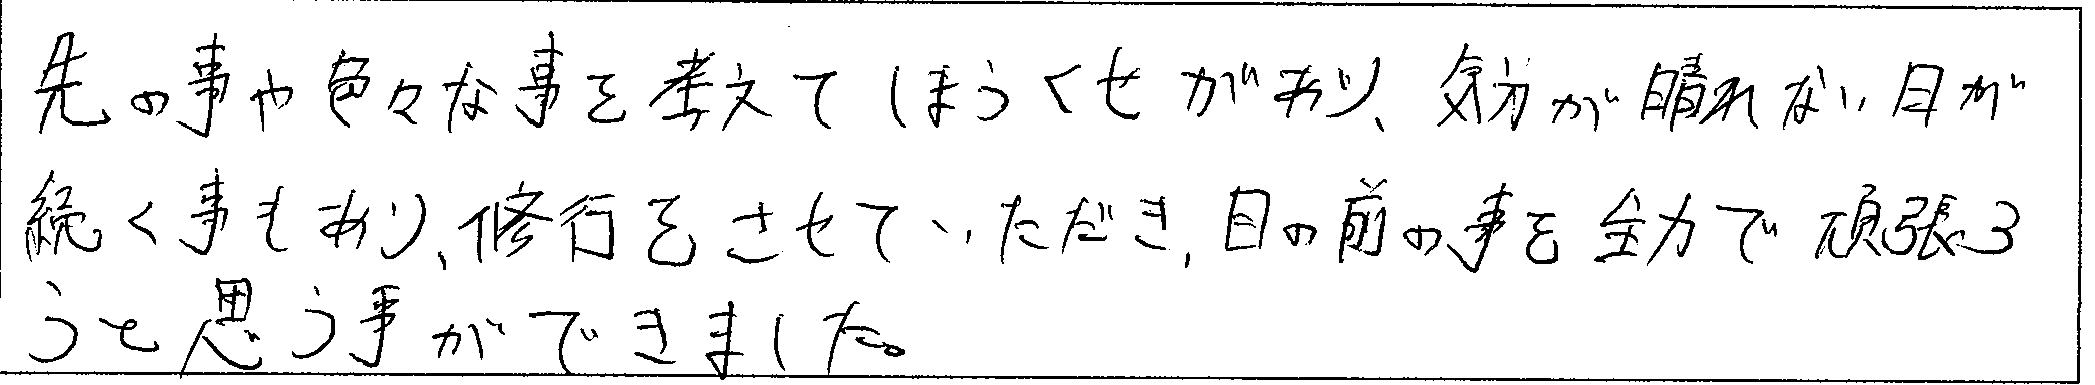 先の事や色々な事を考えてしまうくせがあり、気分が晴れない日が
続く事もあり、修行をさせていただき、目の前の事を全力で頑張ろ
うと思う事ができました。